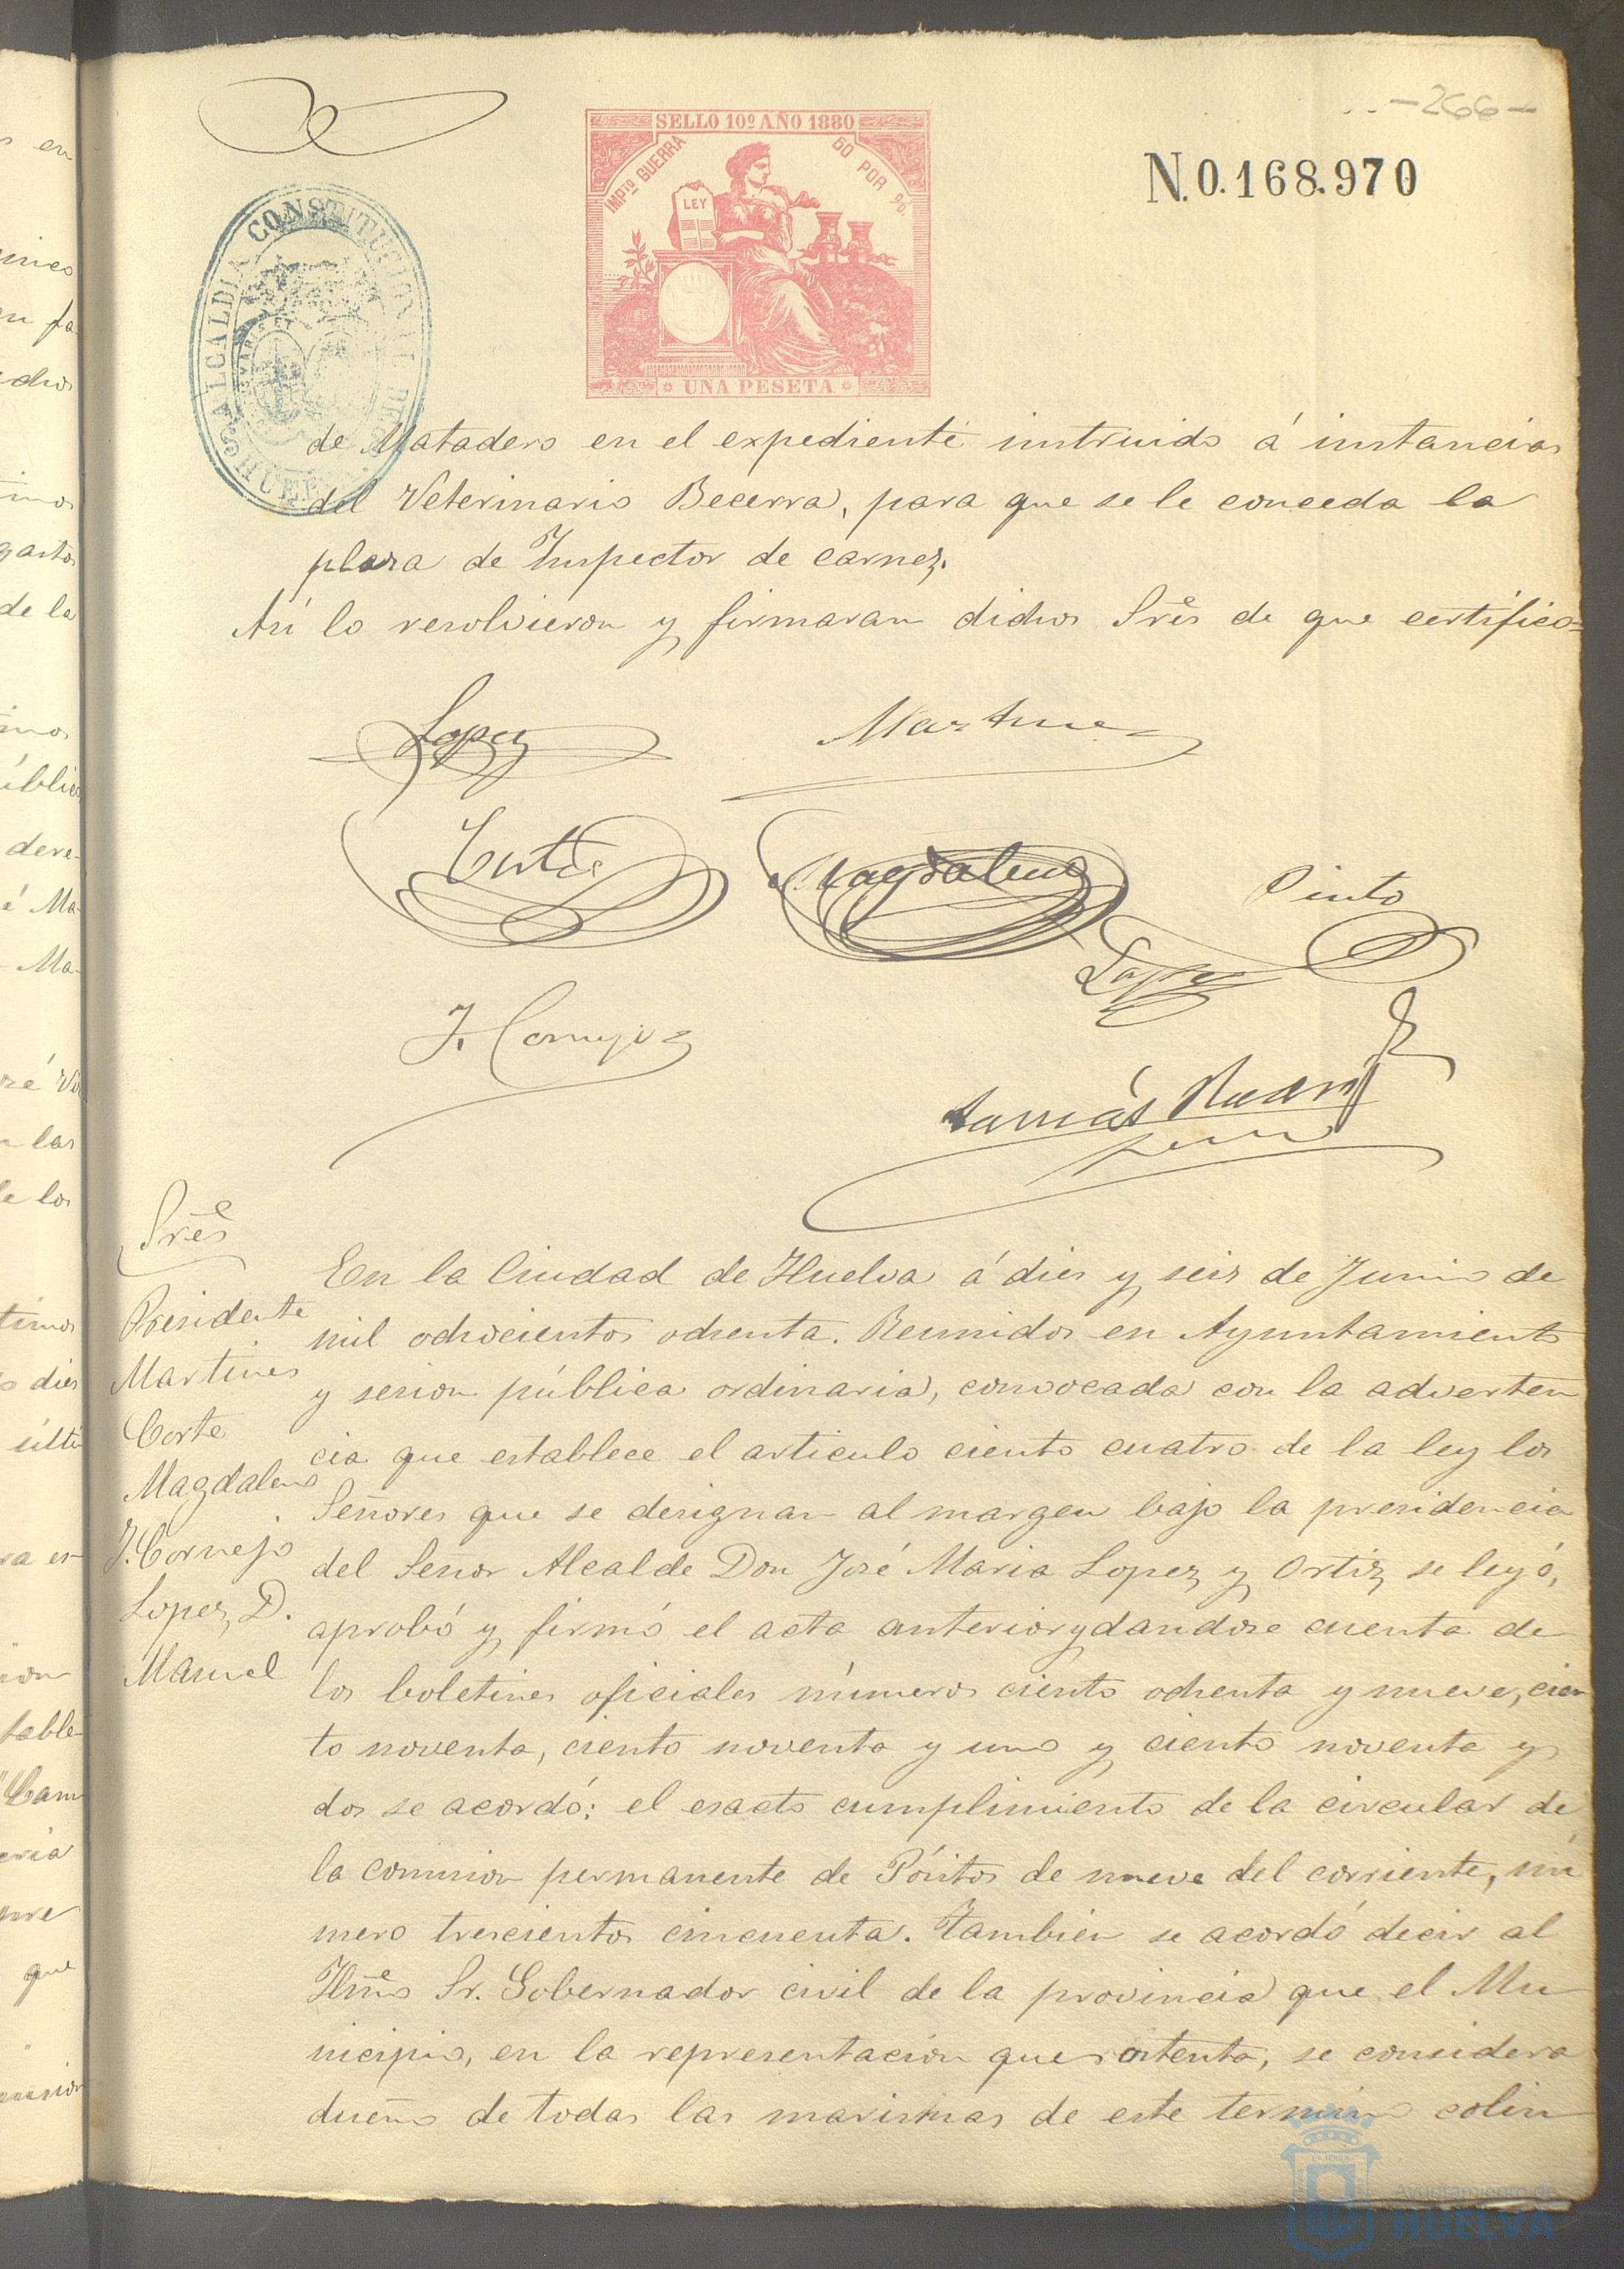 -266-
SELLO 10º AÑO 1880
IMPTO GUERRA
60 POR %
LEY
UNA PESETA
N.0.168.970
ALCALDIA CONSTITUCIONAL DE
HUELVA
de Matadero en el expediente instruido á instancias
del Veterinario Becerra, para que se le conceda la
plaza de Inspector de carnes.
Así lo resolvieron y firmaran dichos Sres de que certifico=
Lopez
Martinez
Corte
Magdalena
Pinto
Lopez
J. Cornejo
Tomás
Sres
Presidente
Martines
Corte
Magdalena
J. Cornejo
Lopez, D.
Manuel
En la Ciudad de Huelva á dies y seis de Junio de
mil ochocientos ochenta. Reunidos en Ayuntamiento
y sesion pública ordinaria, convocada con la adverten
cia que establece el articulo ciento cuatro de la ley los
Señores que se designan al margen bajo la presidencia
del Señor Alcalde Don José Maria Lopez y Ortiz se leyó,
aprobó y firmó el acta anterior y dandose cuenta de
los boletines oficiales números ciento ochenta y nueve, cien
to noventa, ciento noventa y uno y ciento noventa y
dos se acordó: el esacto cumplimiento de la circular de
la comision permanente de Pósitos de nueve del corriente, nú
mero trescientos cincuenta. Tambien se acordó decir al
Ilmo Sr. Gobernador civil de la provincia que el Mu
nicipio, en la representación que ostenta, se considera
dueño de todas las marismas de este termino colin
Ayuntamiento de
HUELVA